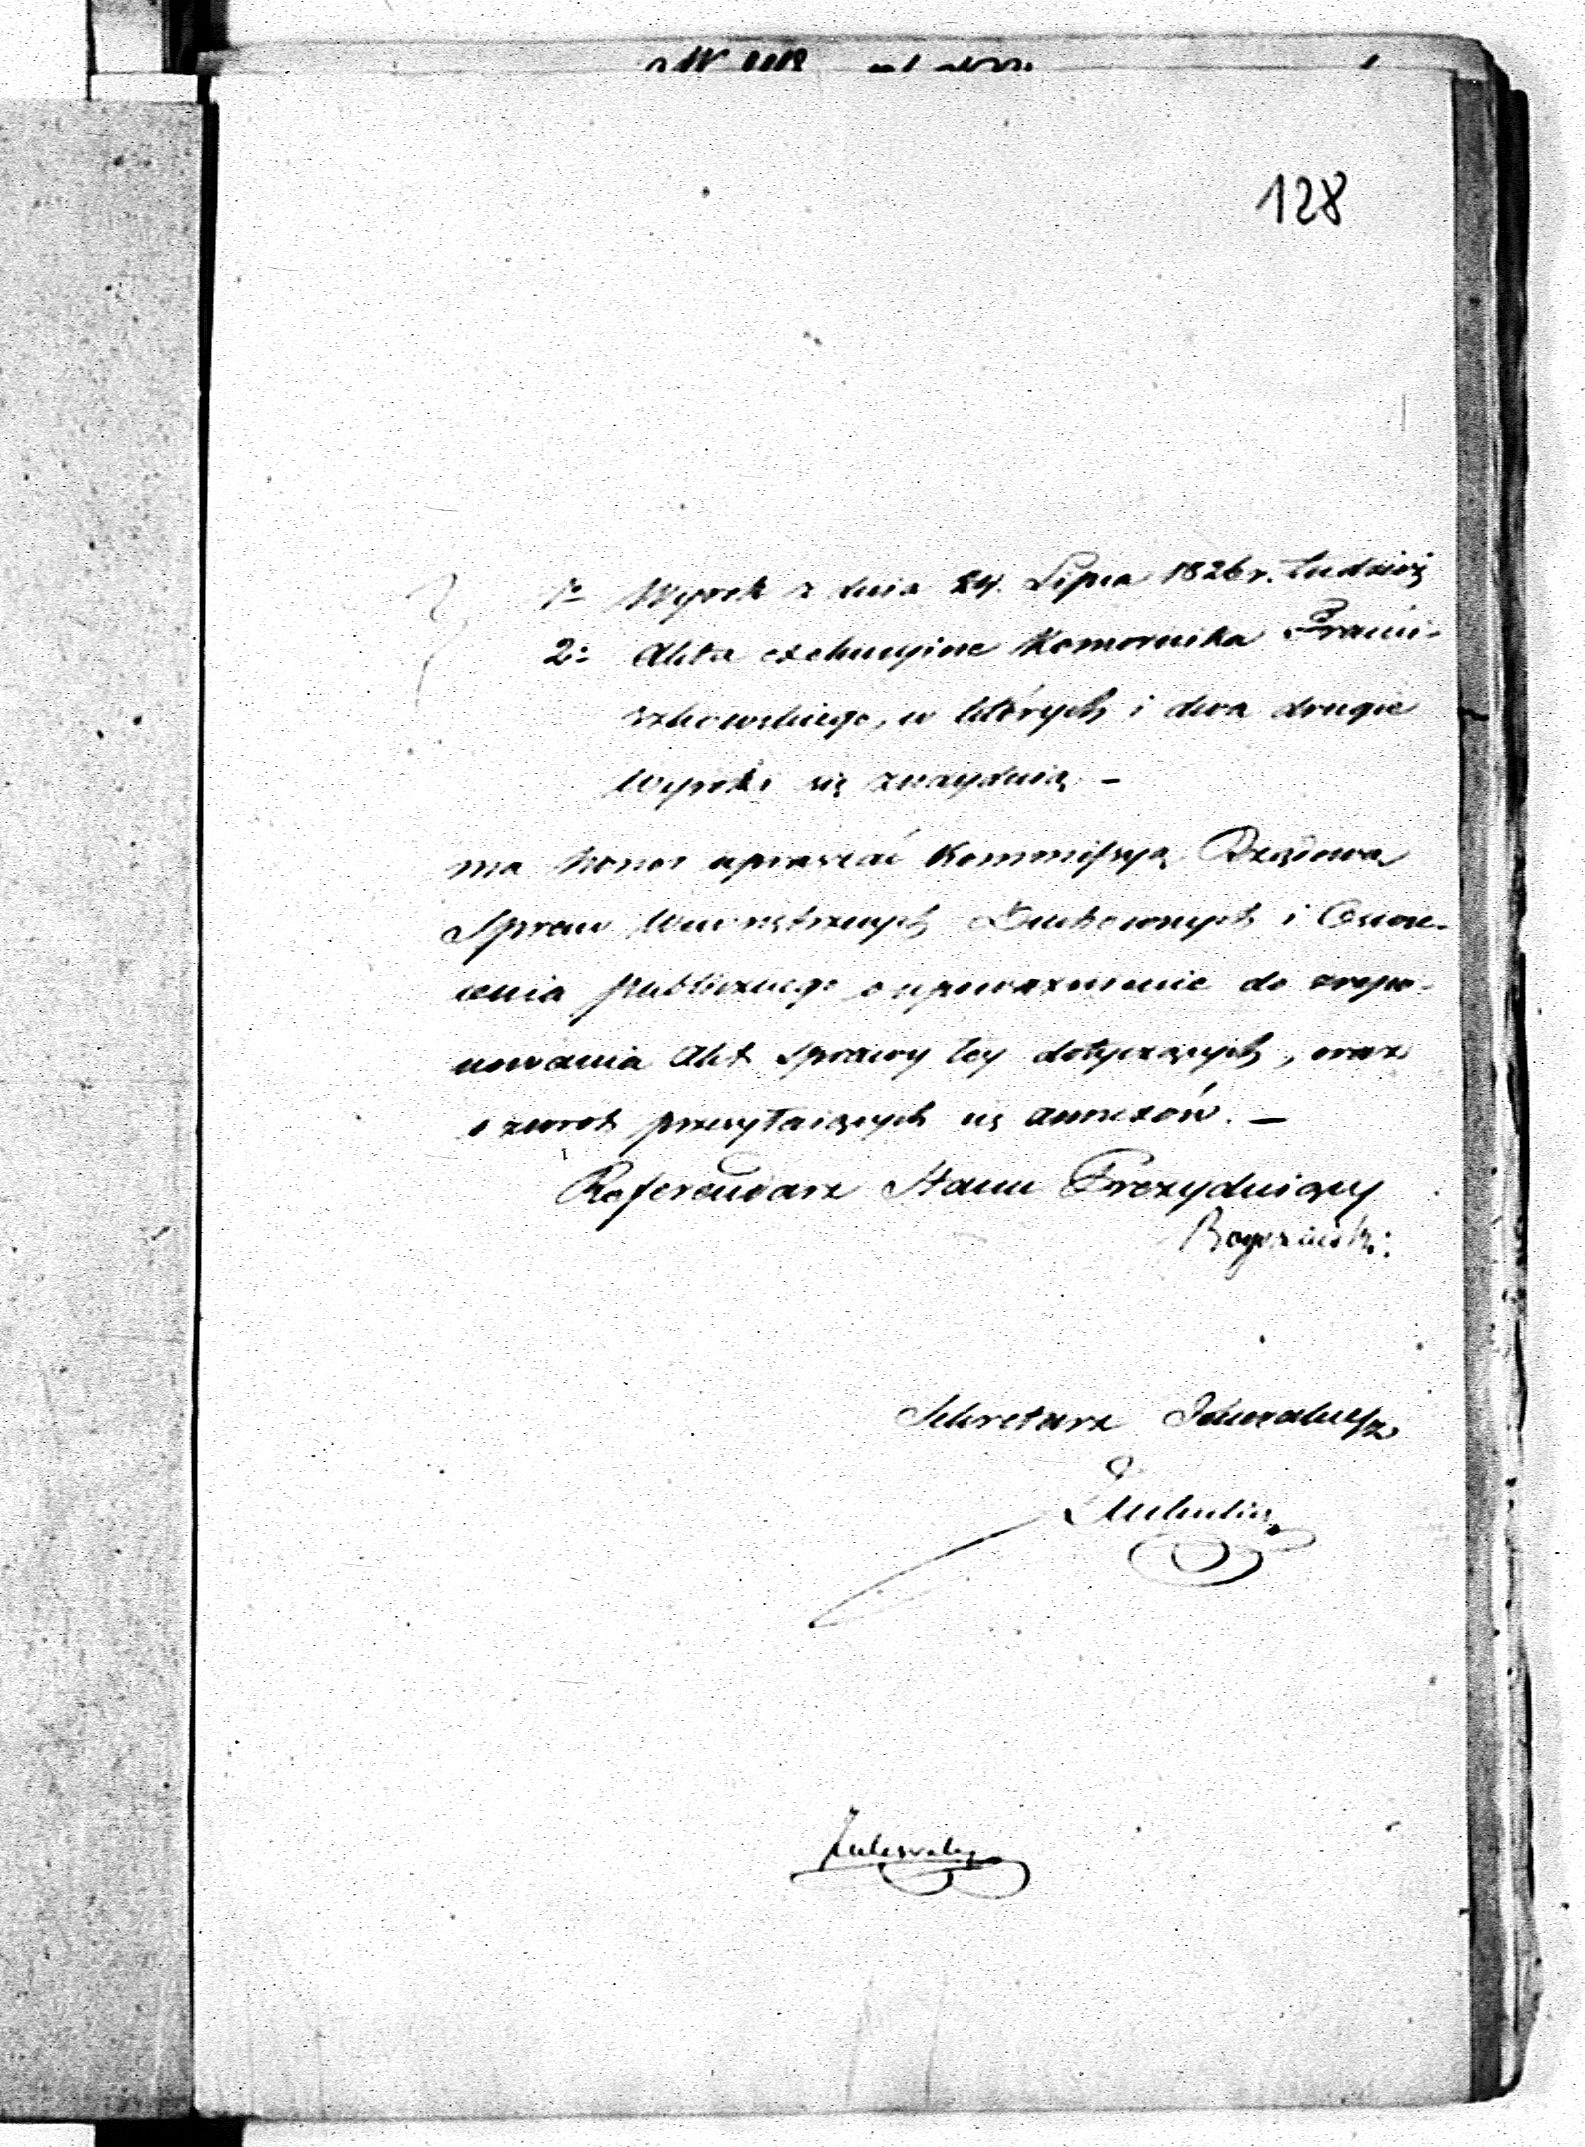 128
1º Wyrok z dnia 24. Lipca 1826 r. tudzież
2º Akta exekucyine Komornika Franci-
szkowskiego, w których i dwa drugie
Wyroki się znayduią. –
ma honor upraszać Kommissyą Rządową
Spraw Wewnętrznych Duchownych i Oswie-
cenia publicznego o upoważnienie do zrepo-
nowania Akt sprawy tey dotyczących, oraz
o zwrot przesyłaiących się annexów. –
Referendarz Stanu Prezyduiący
Sekretarz